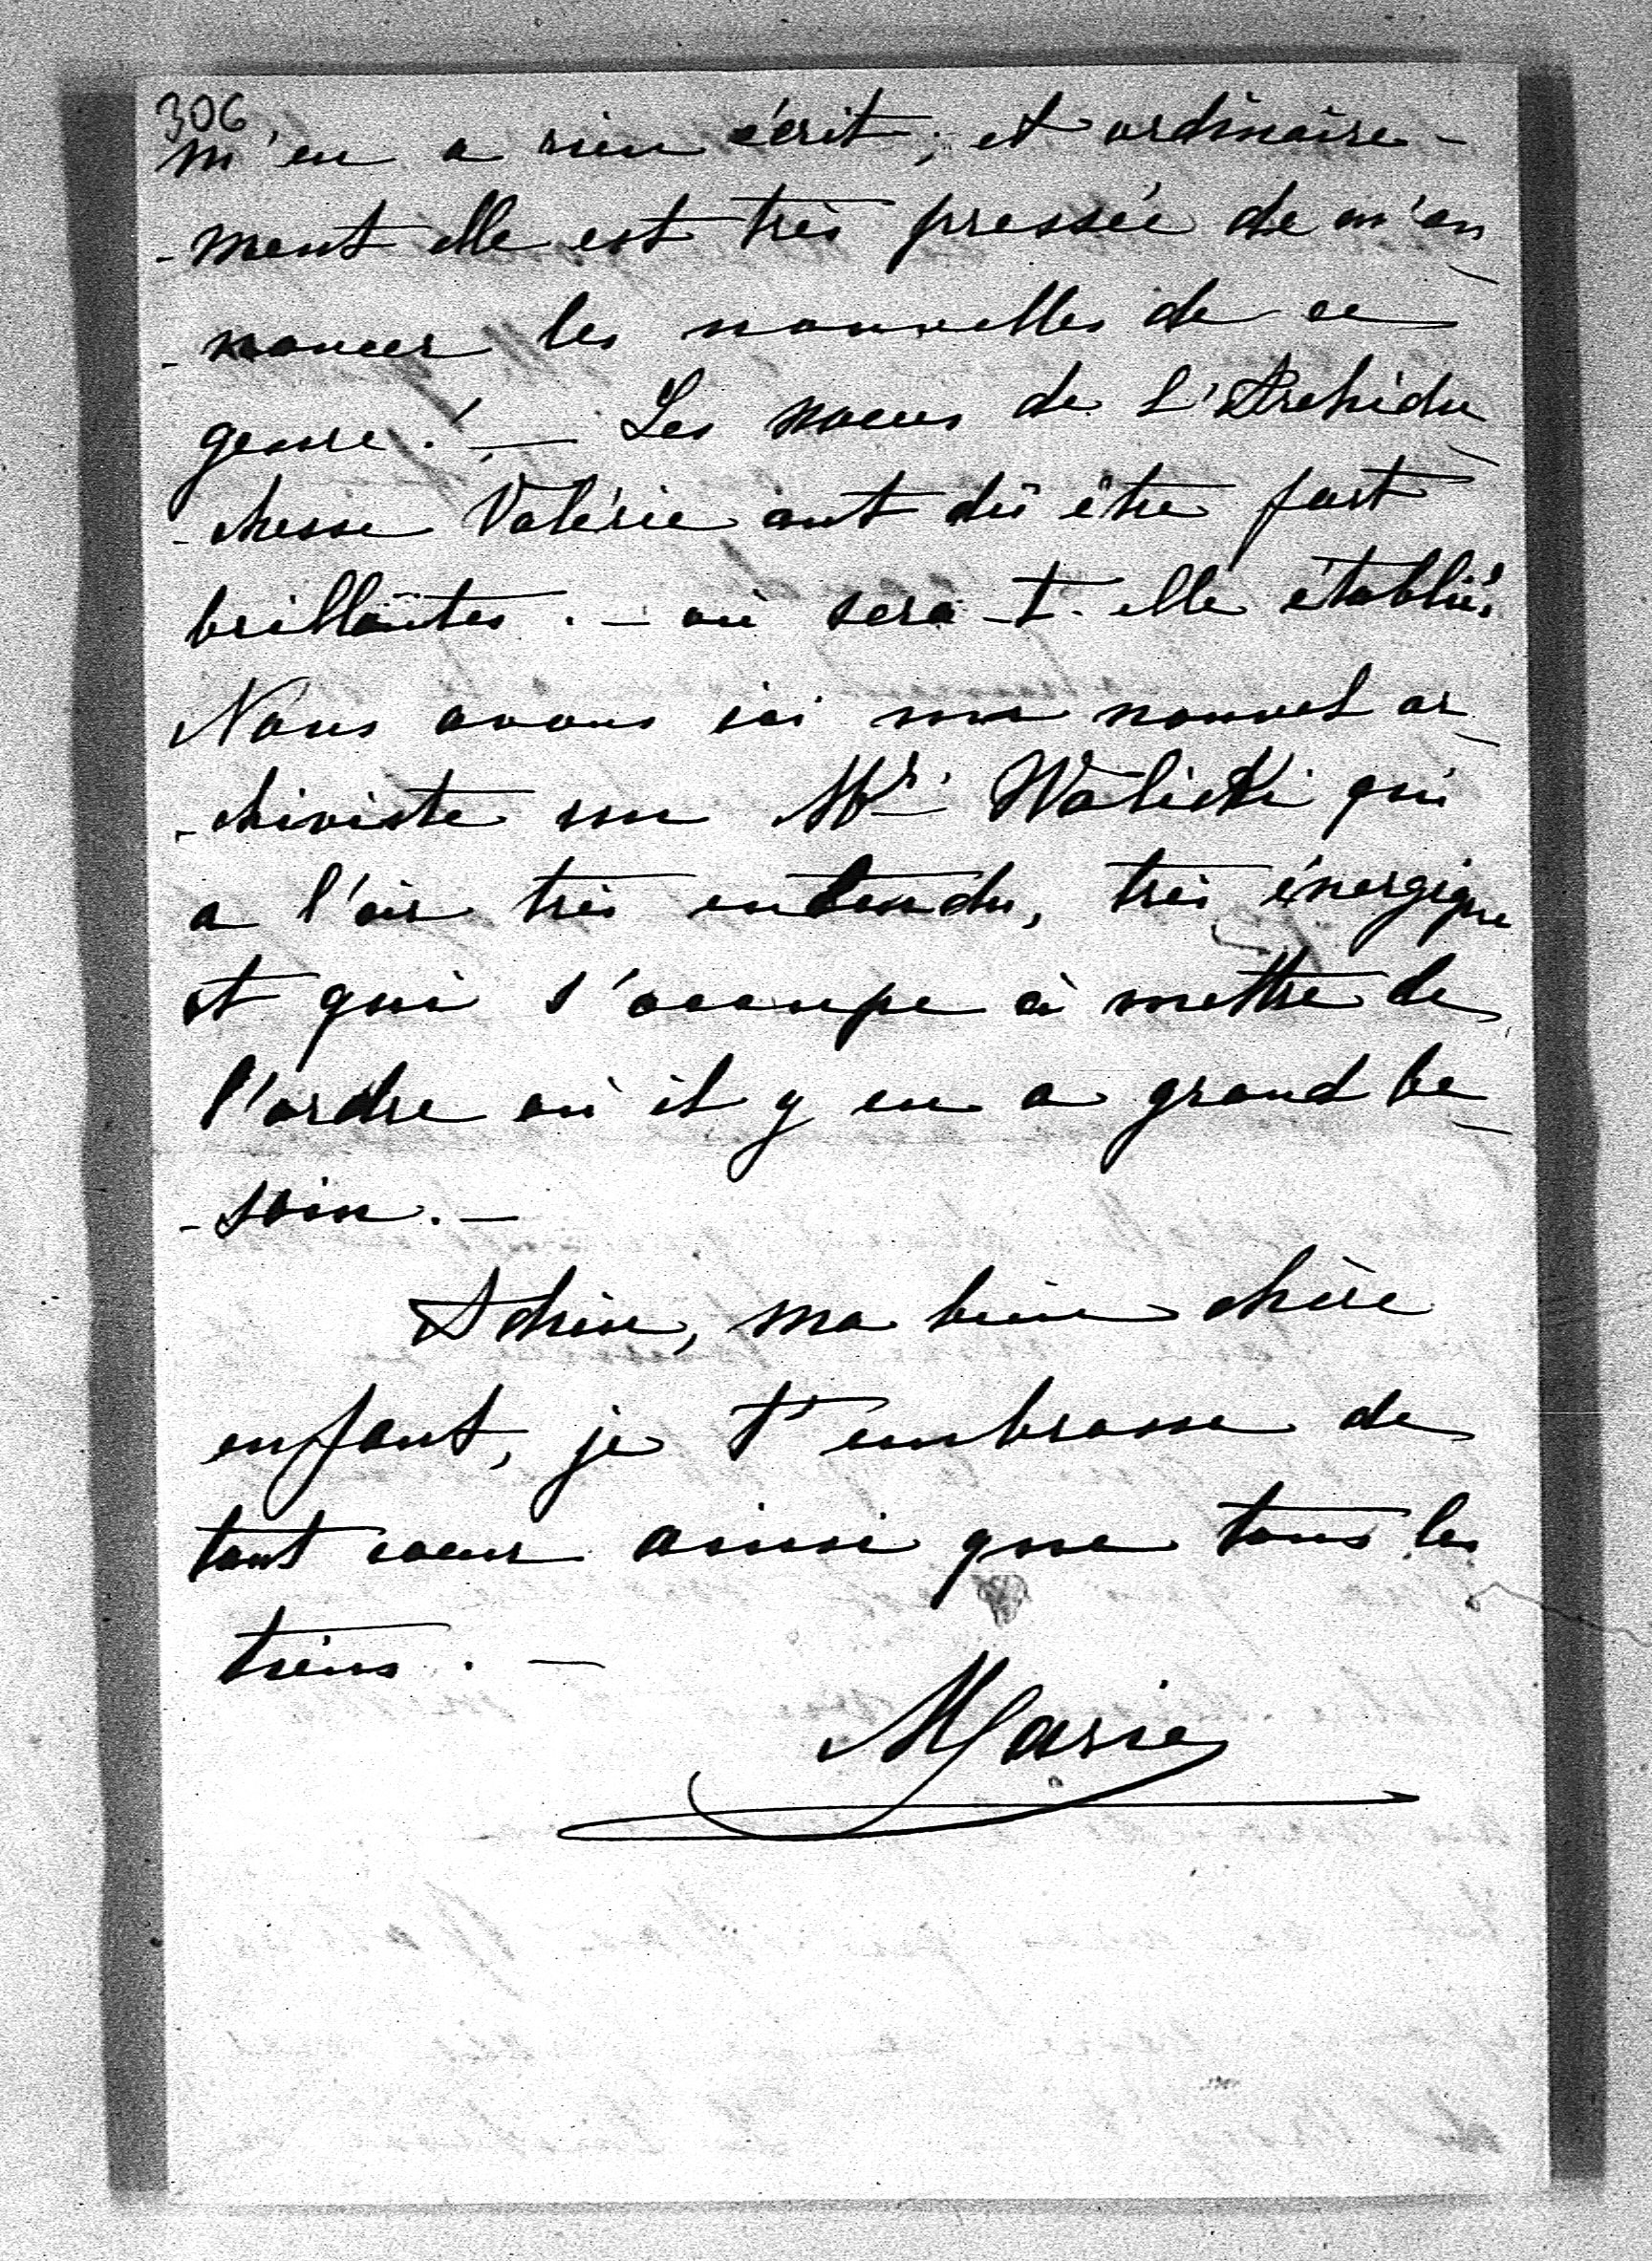 306
m'en a rien écrit, et ordinaire-
-ment elle est très pressée de m'an-
-noncer les nouvelles de ce
genre. ! — Les noces de l'Archidu-
-chesse Valérie ont dû être fort
brillantes. — où sera-t-elle établie?
Nous avons ici un nouvel ar-
-chiviste un Mr. Walicki qui
a l'air très entendu, très énergique
et qui s'occupe à mettre de
l'ordre où il y en a grand be-
-soin. —
Adieu, ma bien chère
enfant, je t'embrasse de
tout coeur ainsi que tous les
tiens. —
Marie